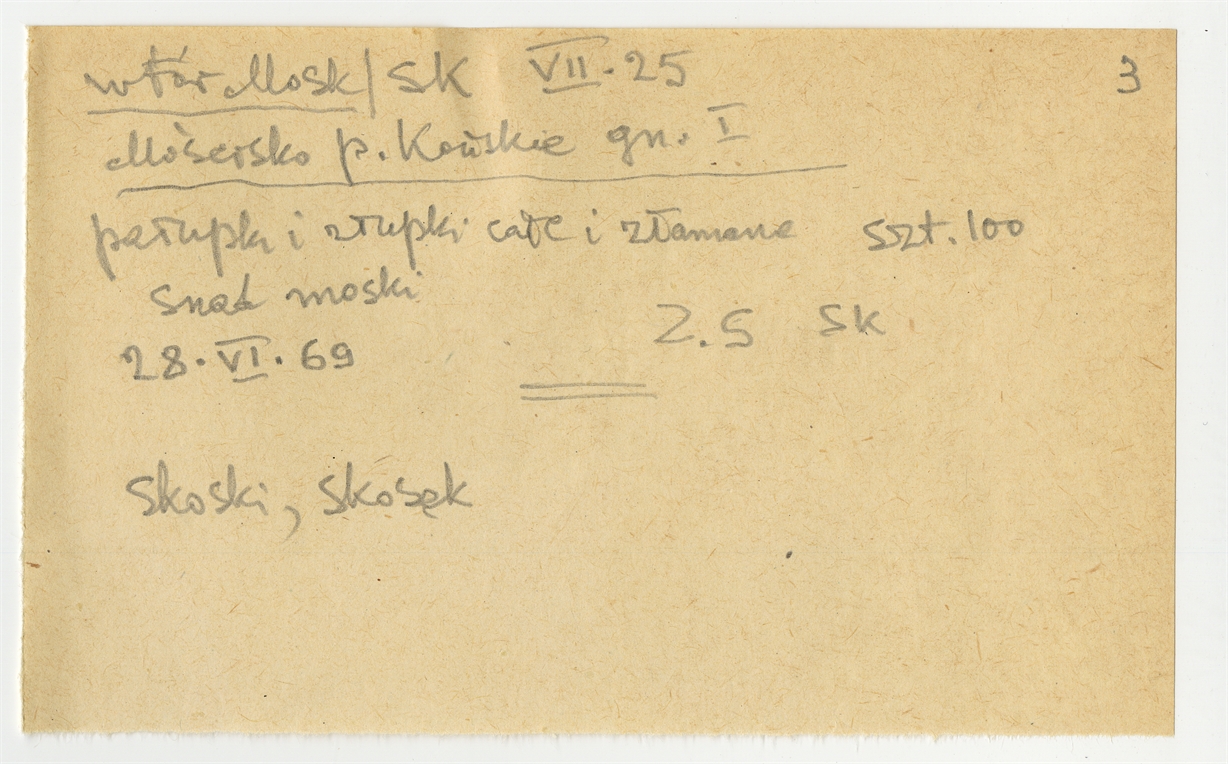 wtór Mosk/SK VII.25
3
Mościsko p. Końskie gn. I
półtupki i złupki całe i złamane szt. 100
snad moski
28.VI.69
Z.S SK
Skoski, Skosęk